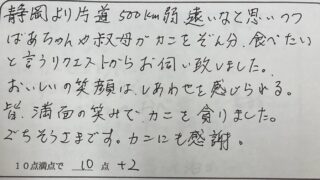 静岡より片道500km弱遠いなと思いつつ
ばあちゃんや叔母がカニをぞん分、食べたい
と言うリクエストからお伺い致しました。
おいしいの笑顔は、しあわせを感じられる。
皆、満面の笑みでカニを貪りました。
ごちそうさまです。カニにも感謝。
10点満点で 10 点 +2